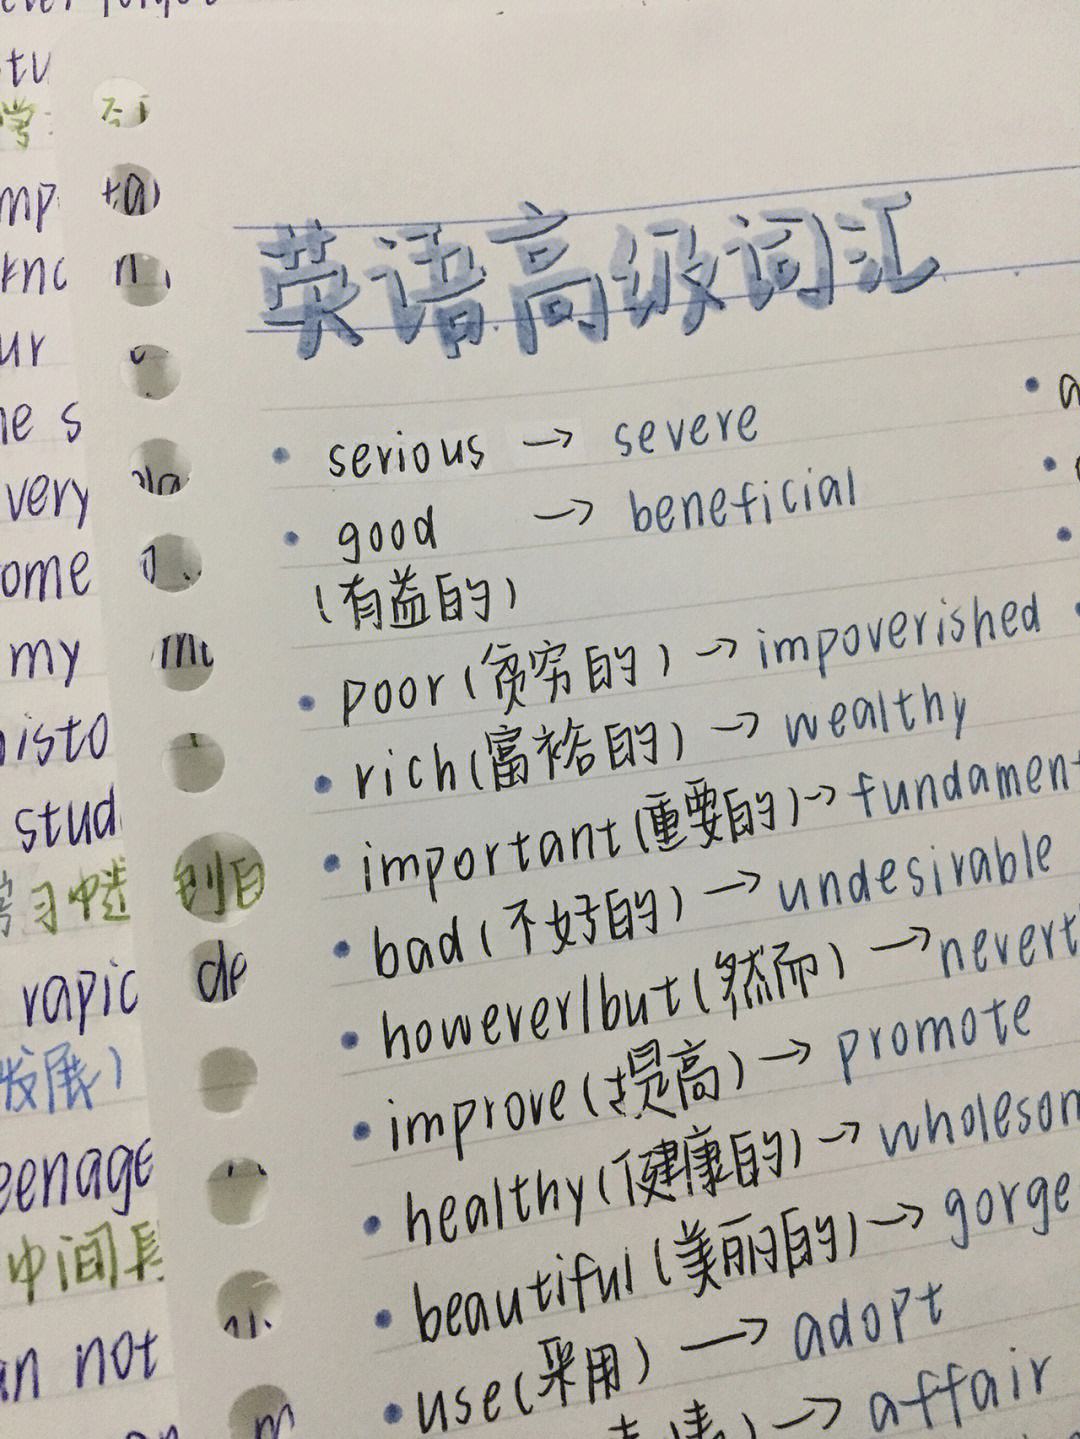 英语高级词汇
serious → severe
good → beneficial
(有益的)
poor (贫穷的) → impoverished
rich (富裕的) → wealthy
important (重要的) → fundament
bad (不好的) → undesirable
however/but (然而) → nevert
improve (提高) → promote
healthy (健康的) → wholesom
beautiful (美丽的) → gorge
use (采用) → adopt
→ affair
very
ome
my
histo
stud
学习中遇到
rapid de
发展)
eenage
中间
an not